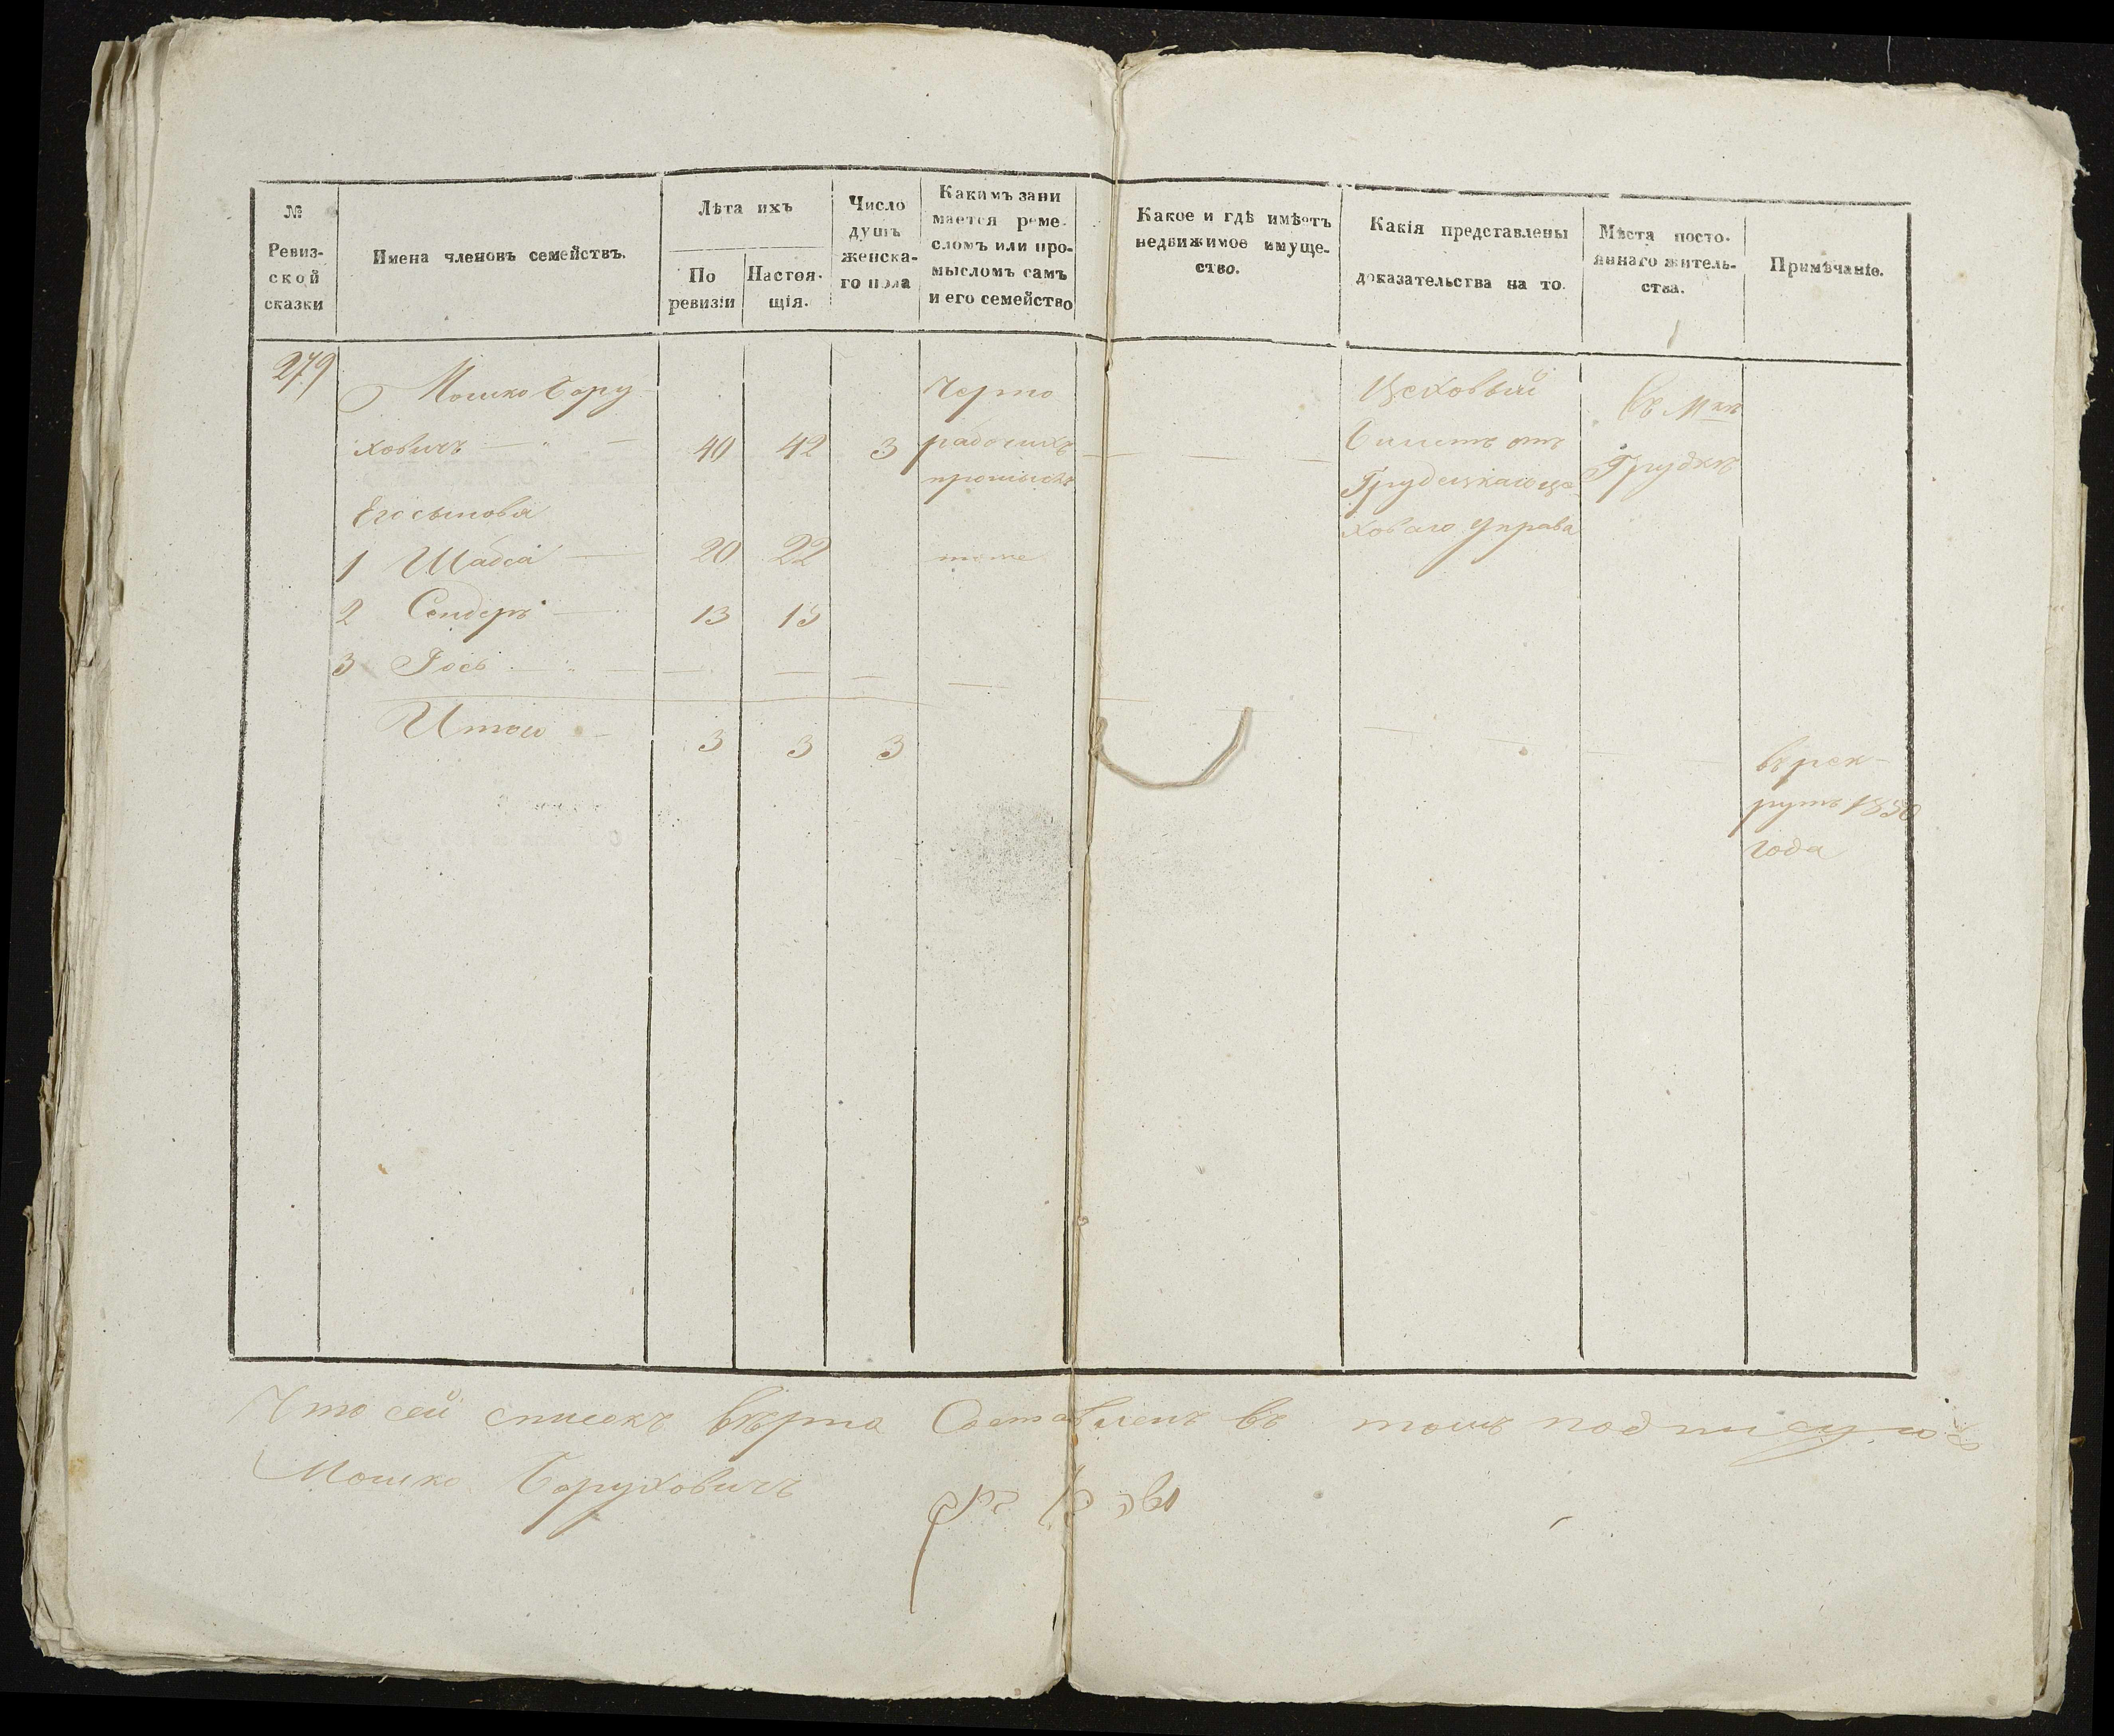 №
Ревиз-
ской
сказки
Имена членовъ семействъ.
Лѣта ихъ
По
ревизіи
Настоя-
щія.
Число
душъ
женска-
го пола
Какимъ зани
мается реме-
сломъ или про-
мысломъ самъ
и его семейство
Какое и гдѣ имѣетъ
недвижимое имуще-
ство.
Какія представлены
доказательства на то.
Мѣста посто-
яннаго житель-
ства.
Примѣчаніе.
279
Мошко Бору
ховичъ 40 42 3
Черно
рабочихъ
промысл
Цеховый
билетъ отъ
Грудецкаго це
ховаго управа
Въ Мкѣ
Грудкѣ
Его сыновя
1 Шабсай 20 22 тоже
2 Сендеръ 13 15
3 Іось
Итого 3 3 3
въ рек-
рутъ 1850
года
Что сей списокъ вѣрно Составленъ въ томъ подписуюсь
Мошко Боруховичъ